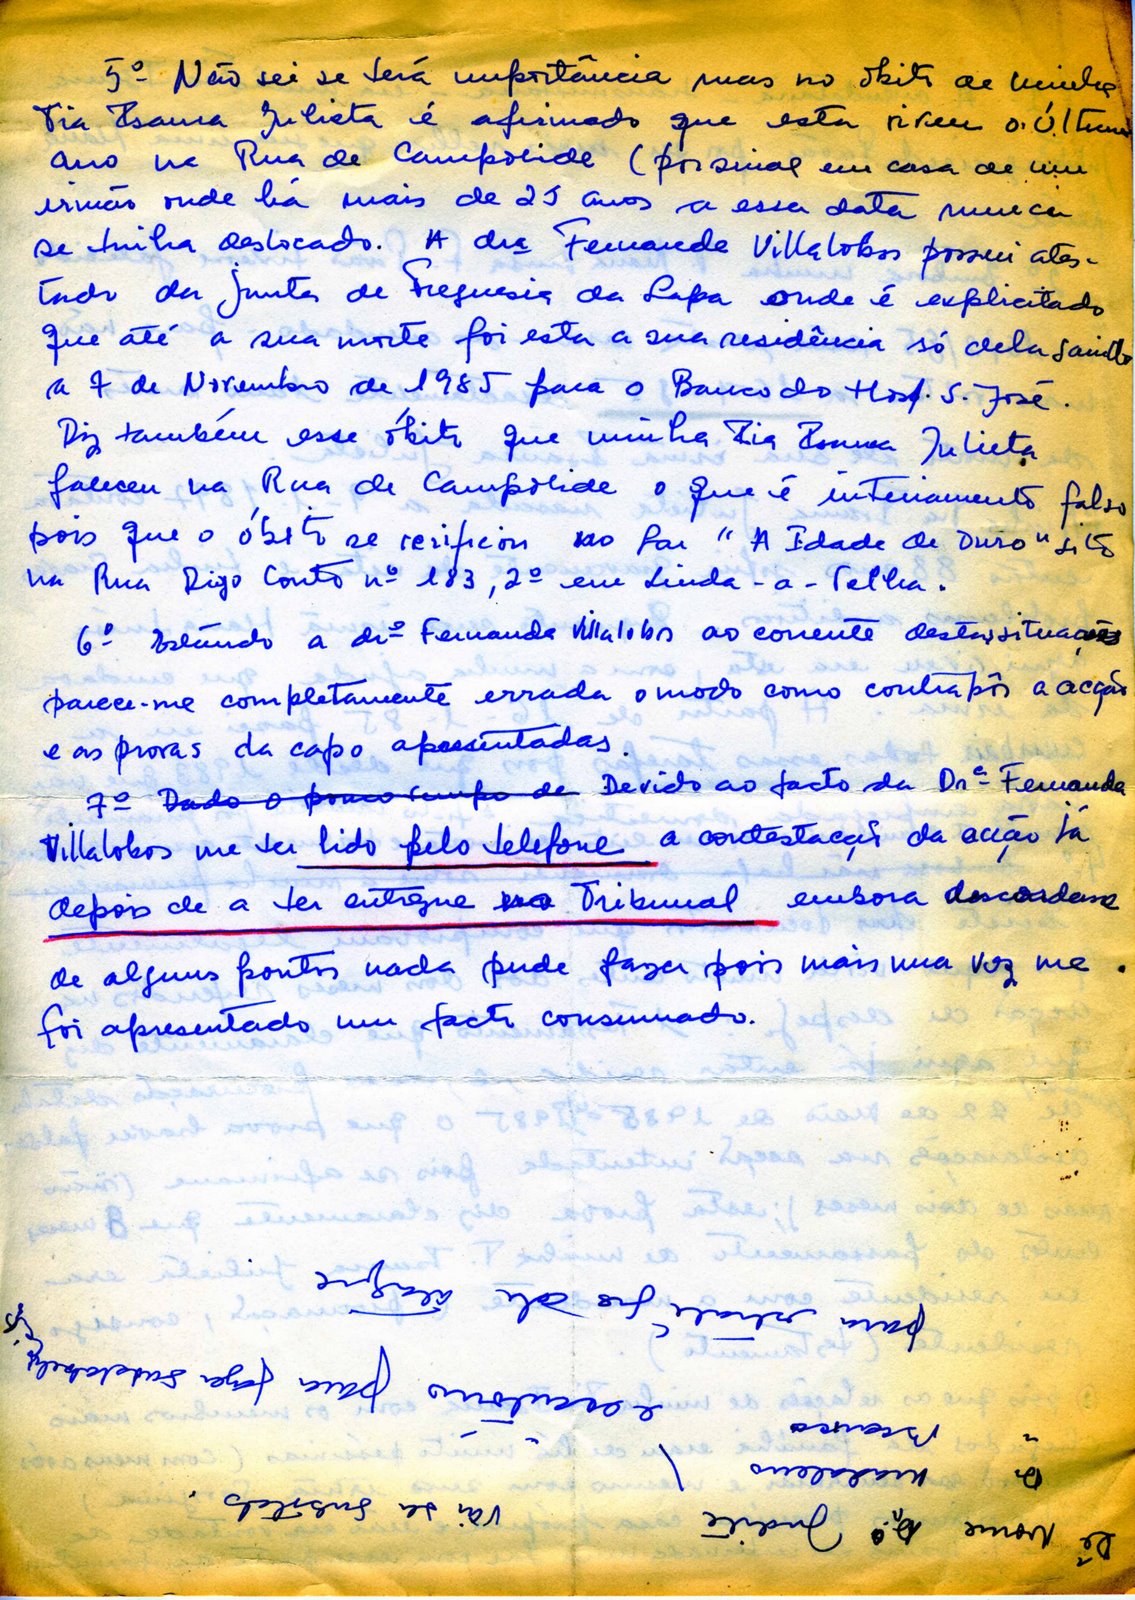 5º Não sei se terá importância mas no óbito de minha
Tia Isaura Julieta é afirmado que esta viveu o último
ano na Rua de Campolide (por sinal em casa de um
irmão onde há mais de 25 anos a essa data nunca
se tinha deslocado. A drª Fernanda Villalobos possui ates-
tado da Junta de Freguesia da Lapa onde é explicitado
que até a sua morte foi esta a sua residência só dela saindo
a 7 de Novembro de 1985 para o Banco do Hosp. S. José.
Diz também esse óbito que minha Tia Isaura Julieta
faleceu na Rua de Campolide o que é inteiramente falso
pois que o óbito se verificou no Lar "A Idade de Ouro" sito
na Rua Diogo Couto nº 183, 2º em Linda-a-Velha.
6º Estando a drª Fernanda Villalobos ao corrente desta situação
parece-me completamente errada o modo como contrapôs a acção
e as provas da capo apresentadas.
7º Dado o pouco tempo de Devido ao facto da Drª Fernanda
Villalobos me ter lido pelo telefone a contestação da acção já
depois de a ter entregue no Tribunal embora discordasse
de alguns pontos nada pude fazer pois mais uma vez me
foi apresentado um facto consumado.
Nome Drª Judite
Vai ser
Dr
Madalena
Branca
para fazer
para